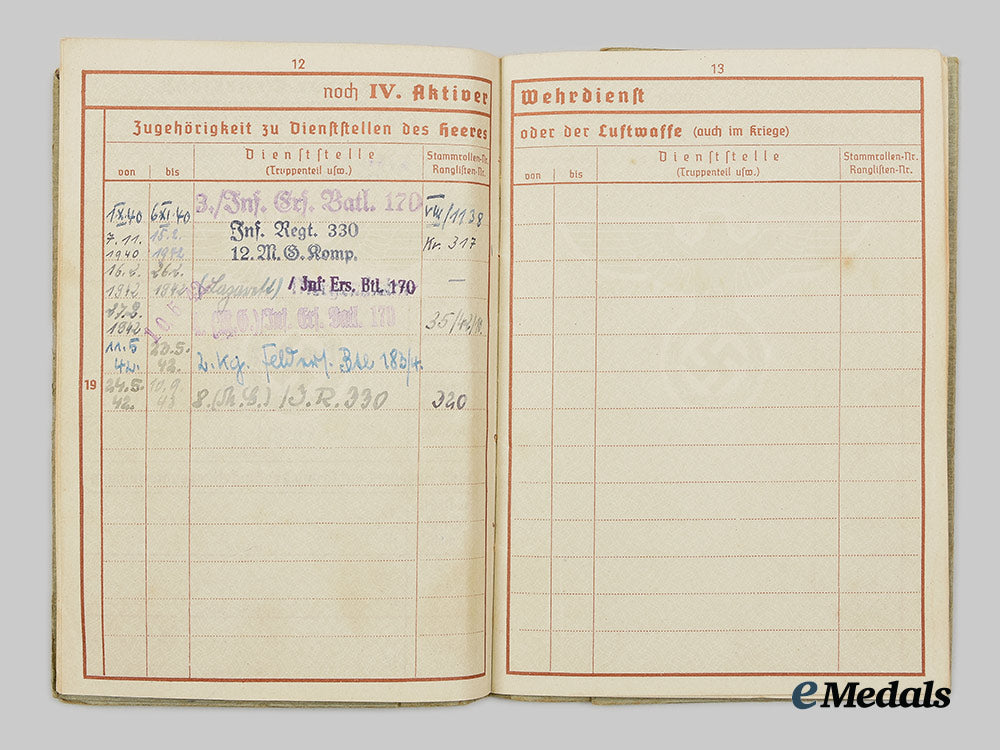 12
noch IV. Aktiver
Zugehörigkeit zu Dienststellen des Heeres
von
bis
Dienststelle
(Truppenteil usw.)
Stammrollen-Nr.
Ranglisten-Nr.
1.IX.40 6.XI.40 3./Inf. Ers. Batl. 170 VIII/1138
7.11. 15.2. Inf. Regt. 330
1940 1942 12. M. G. Komp. Kr. 317
16.2. 26.2.
1942 1942 (Lazarett) / Inf. Ers. Btl. 170 —
27.2.
1942 Inf. Ers. Batl. 170 35/42/
11.5 23.5.
42. 42. 2. Kp. Felders. Btl 183/4.
19
24.5. 10.9.
42. 43 8.(M.G.)/I.R.330 320
13
Wehrdienst
oder der Luftwaffe (auch im Kriege)
von
bis
Dienststelle
(Truppenteil usw.)
Stammrollen-Nr.
Ranglisten-Nr.
eMedals